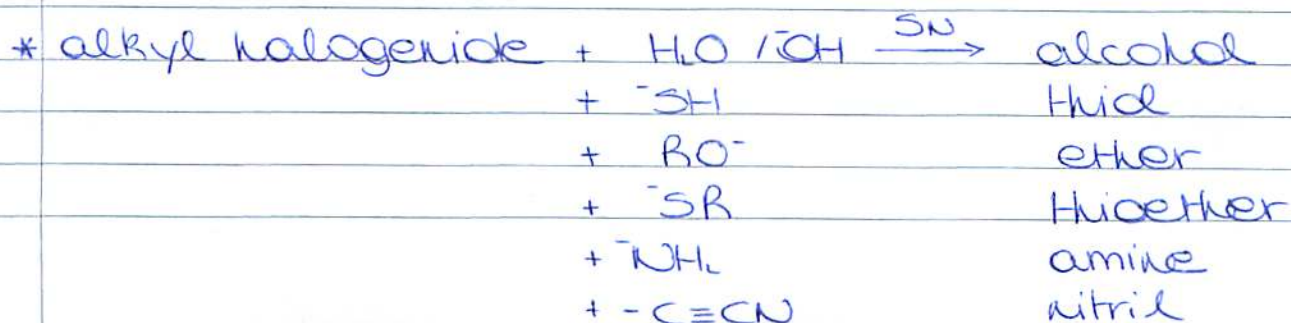 * alkyl halogenide + H₂O / ⁻OH SN→ alcohol
+ ⁻SH thiol
+ RO⁻ ether
+ ⁻SR thioether
+ ⁻NH₂ amine
+ -C≡CN nitril